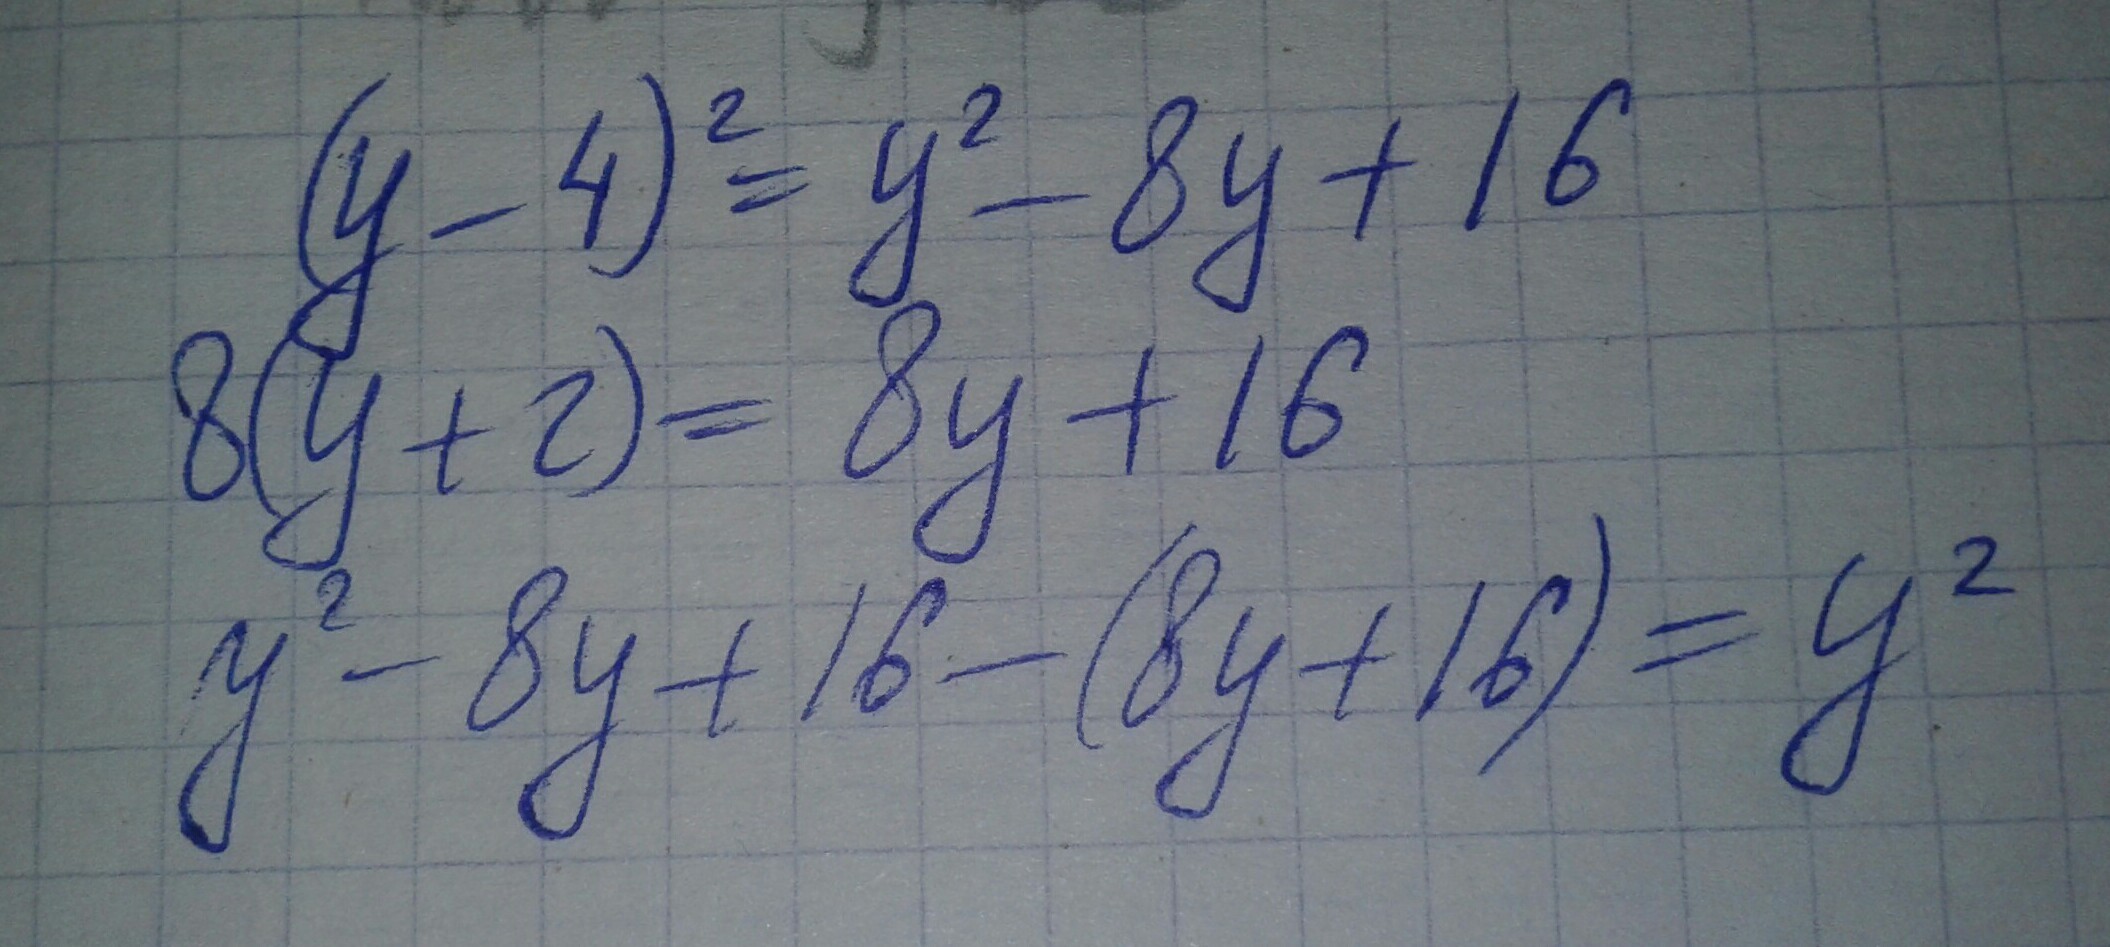 (y - 4)² = y² - 8y + 16
8(y + 2) = 8y + 16
y² - 8y + 16 - (8y + 16) = y²